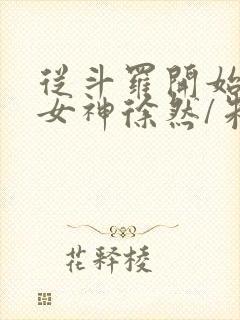 從斗羅開始
女神徐然/
花釋棱